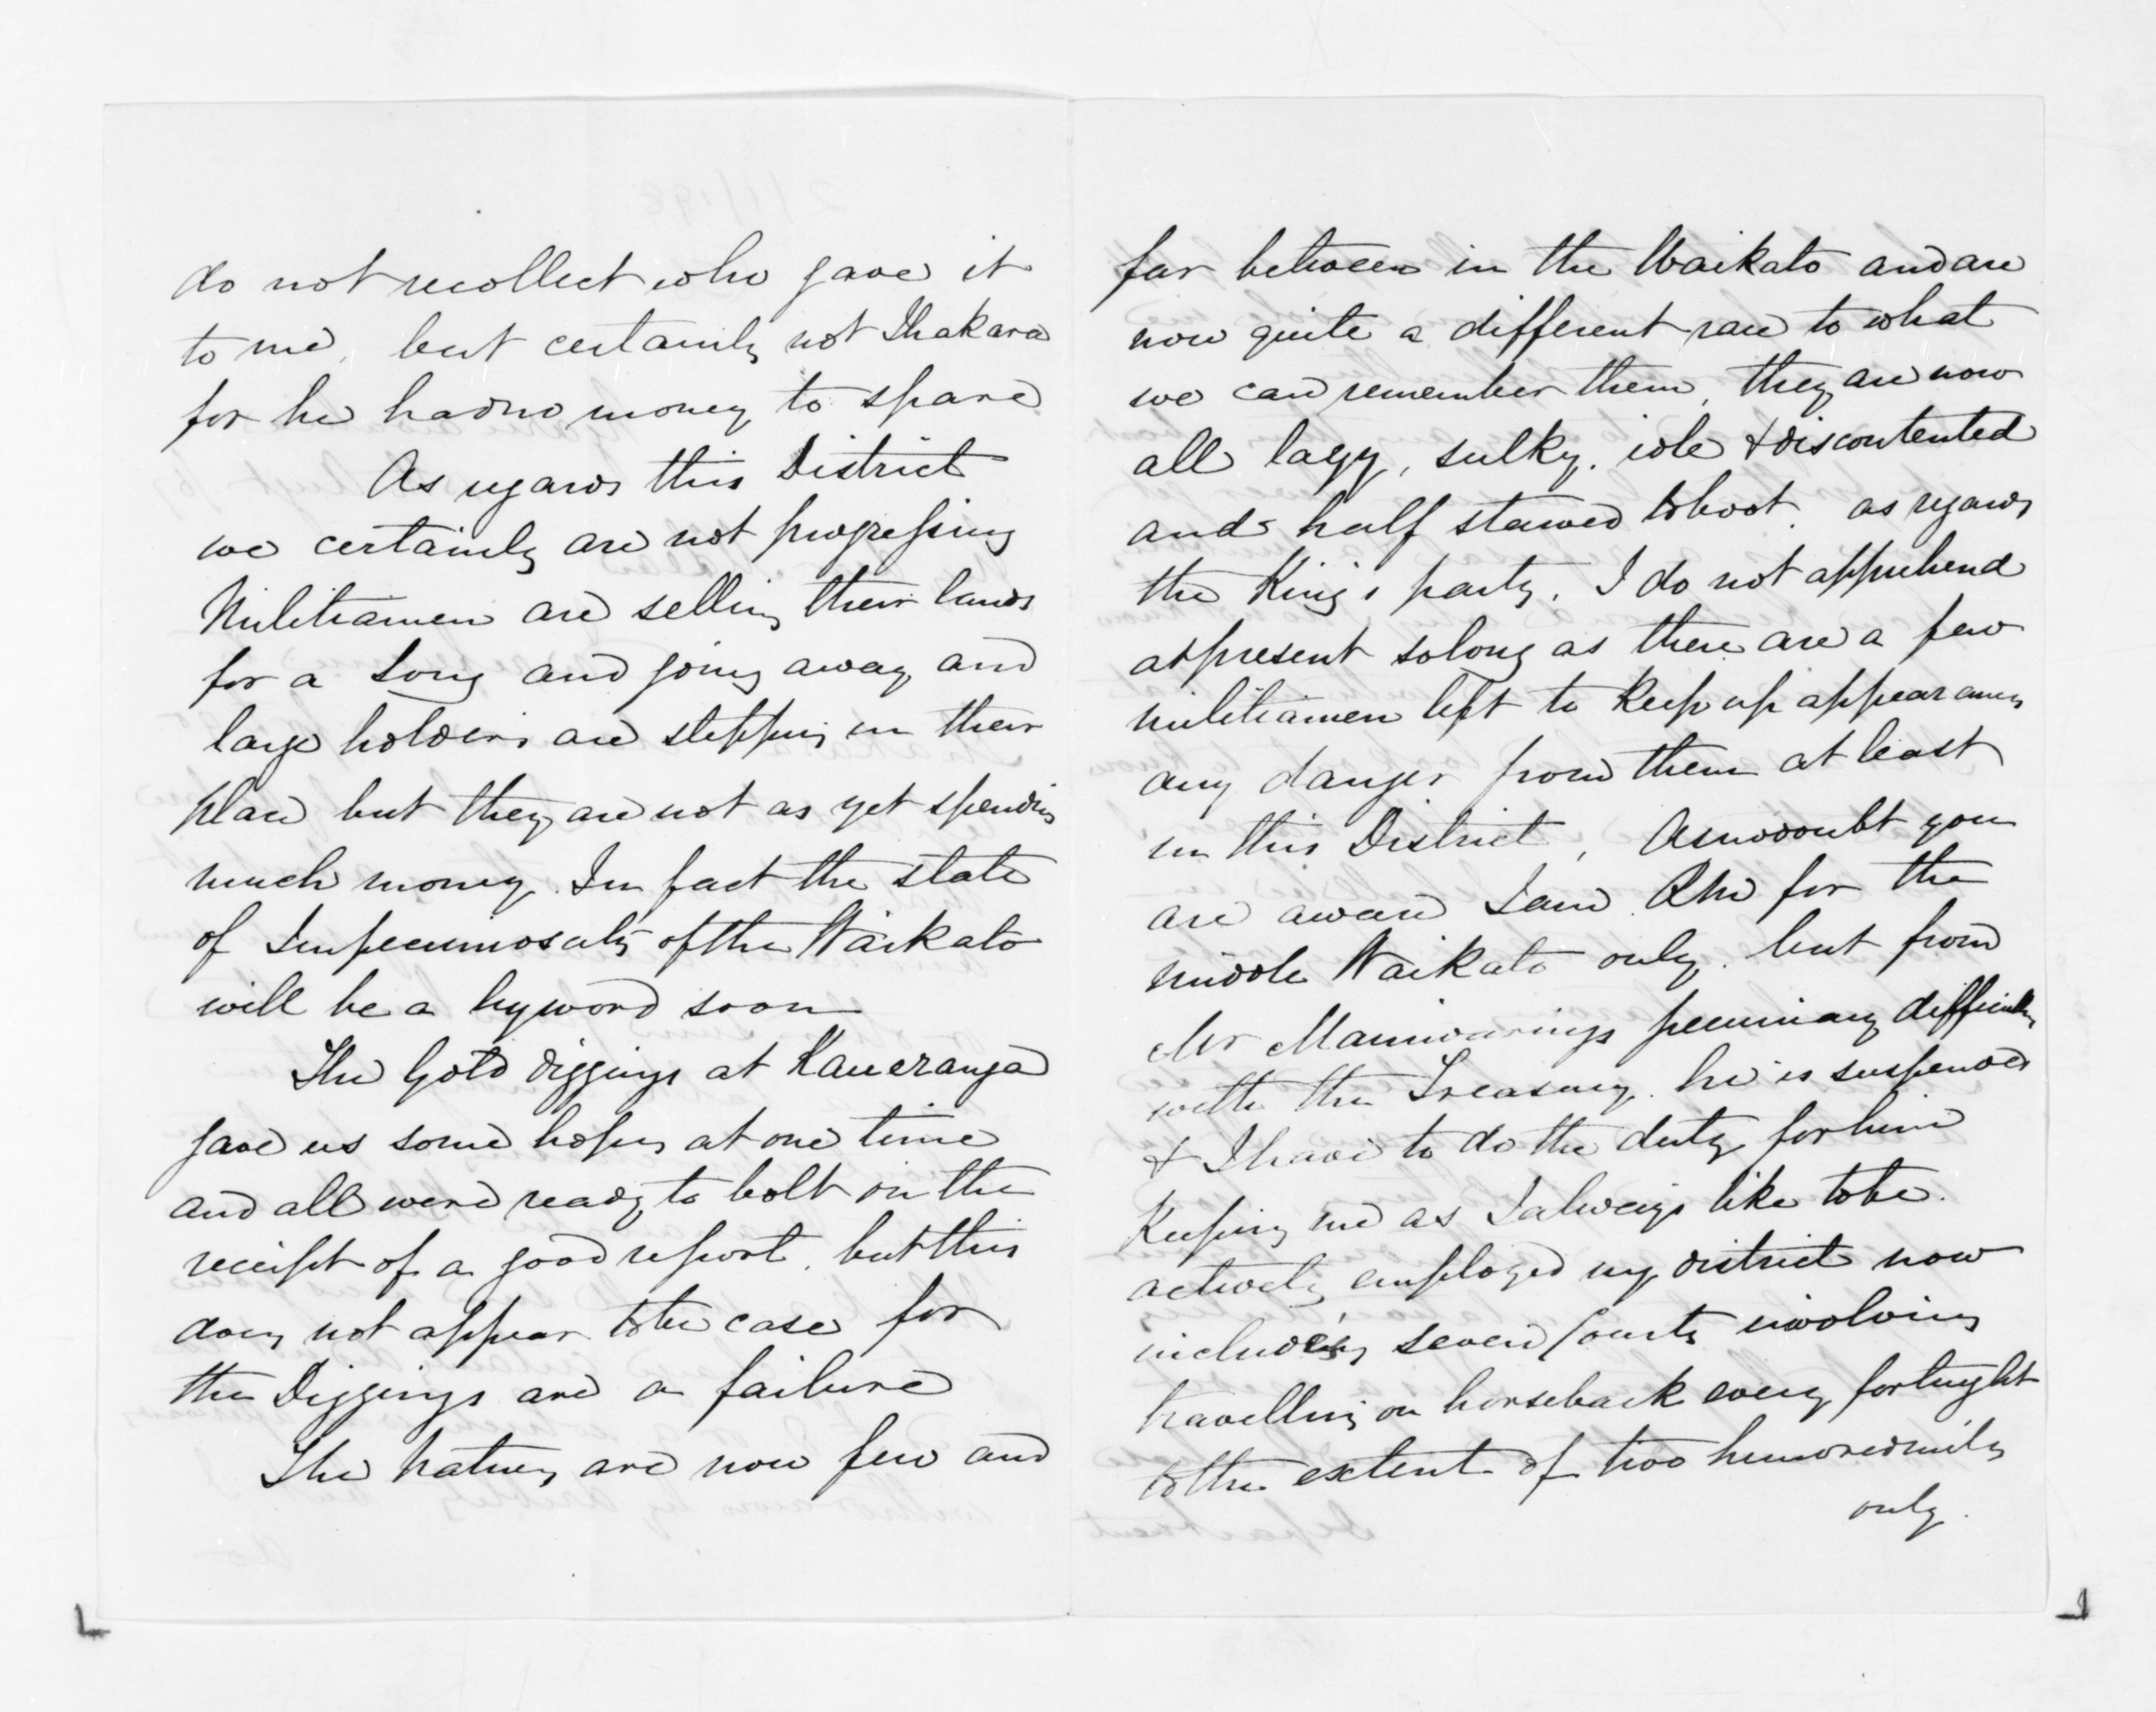 do not recollect who gave it
to me, but certainly not Ihakara
for he had no money to spare
As regards this District
we certainly are not progressing
Militiamen are selling their lands
for a song and going away and
large holders are stepping in their
place but they are not as yet spending
much money. In fact the state
of Impecuniosity of the Waikato
will be a byword soon
The Gold diggings at Kaueranga
gave us some hopes at one time
and all were ready to bolt on the
receipt of a good report, but this
does not appear to be the case for
the Diggings are a failure
The Natives are now few and
far between in the Waikato and are
now quite a different race to what
we can remember them, they are now
all lazy, sulky, idle & discontented
and half starved to boot. as regards
the Kings party, I do not apprehend
at present so long as there are a few
militiamen left to keep up appearances
any danger from them at least
in this District, As no doubt you
are aware I am RM for the
middle Waikato only. but from
Mr Mainwarings pecuniary difficulties
with the Treasury. he is suspended
& I have to do the duty for him
Keeping me as I always like to be.
actively employed my district now
including seven Courts involving
travelling on horseback every fortnight
to the extent of two hundred miles
only.